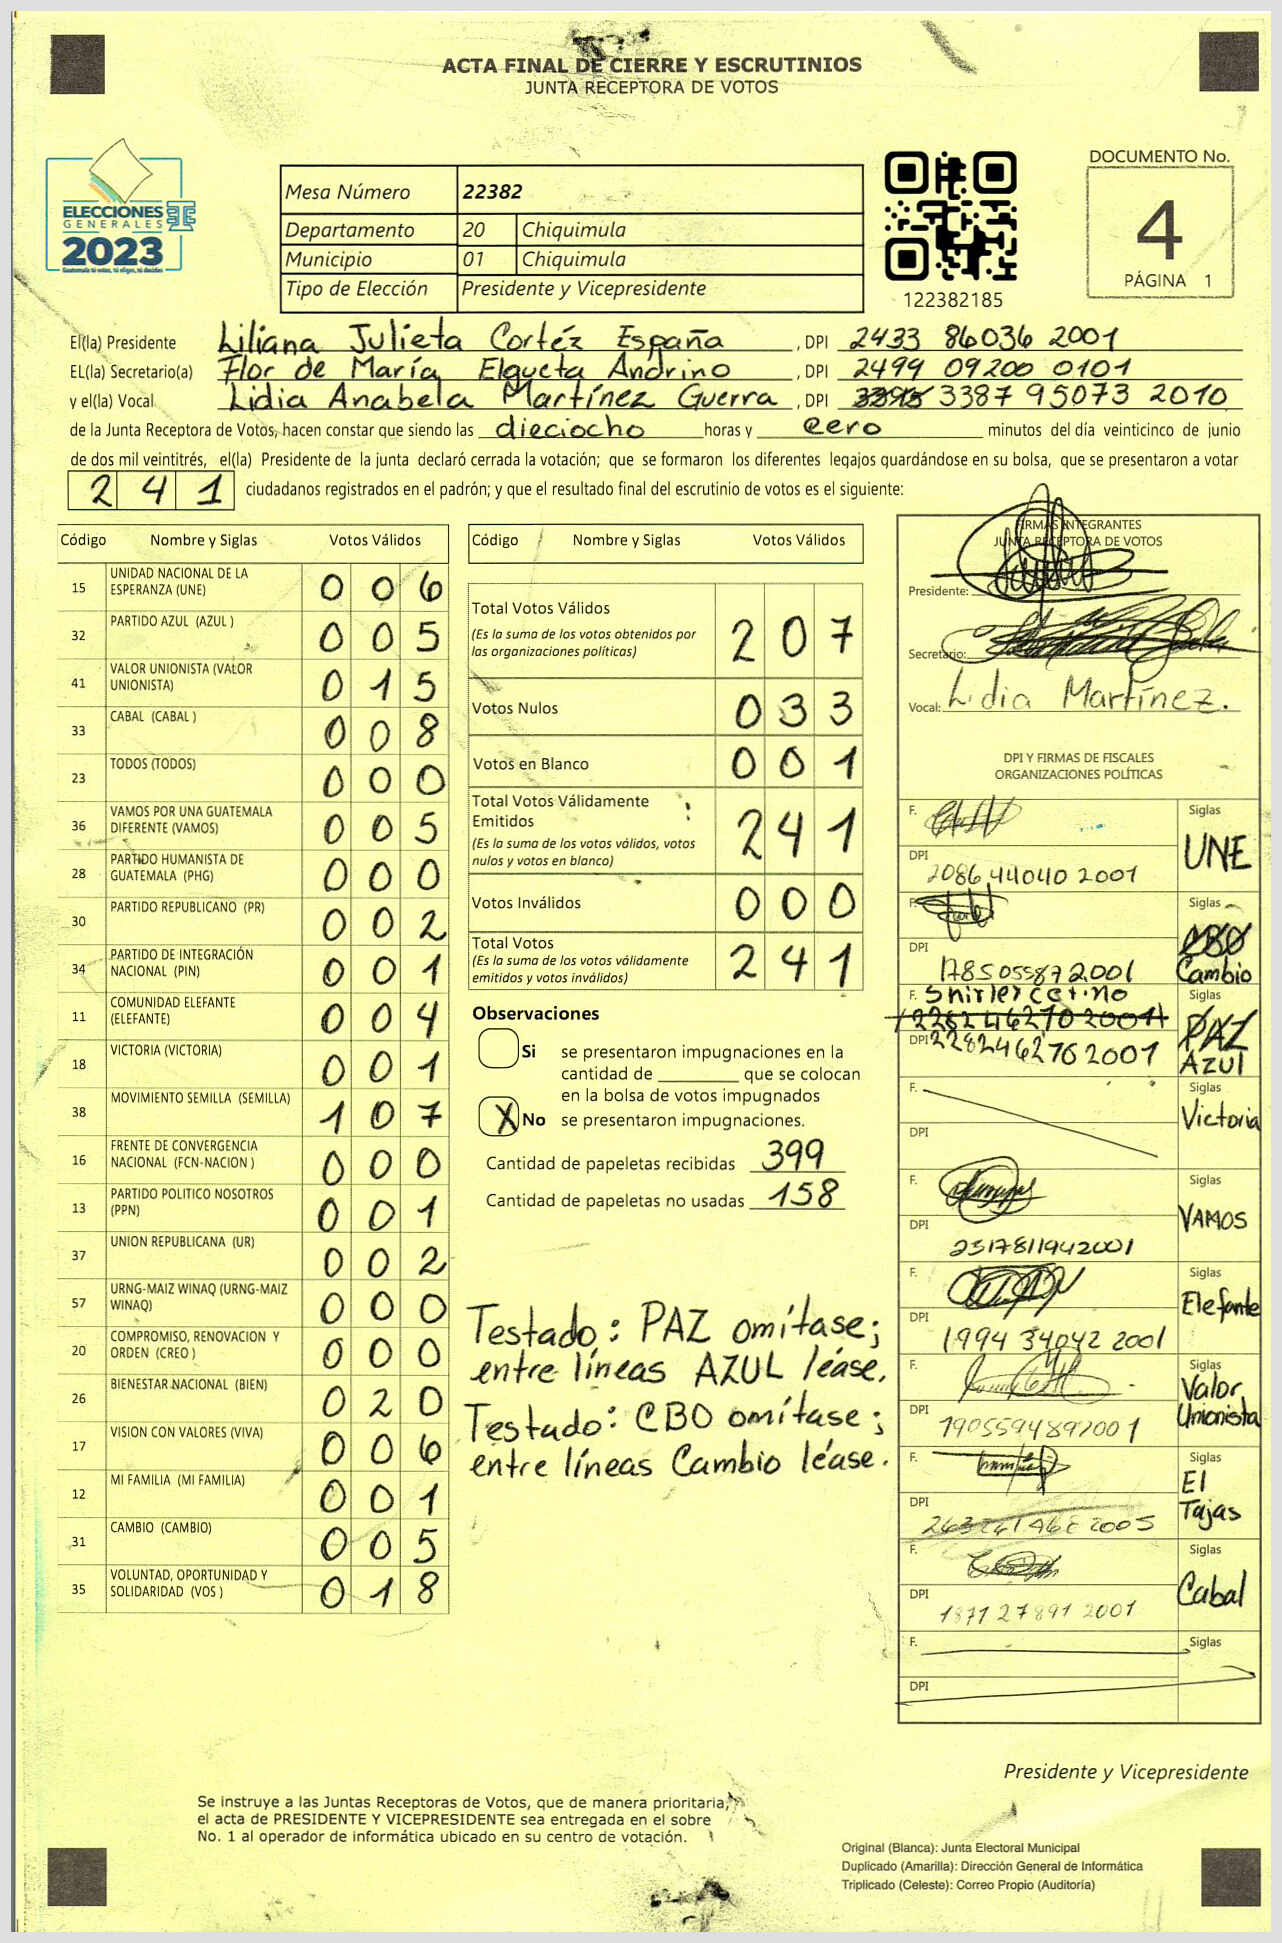 ACTA FINAL DE CIERRE Y ESCRUTINIOS
JUNTA RECEPTORA DE VOTOS
ELECCIONES
GENERALES
2023
Guatemala tú votas, tú eliges, tú decides
Mesa Número 22382
Departamento 20 Chiquimula
Municipio 01 Chiquimula
Tipo de Elección Presidente y Vicepresidente
122382185
DOCUMENTO No.
4
PÁGINA 1
El(la) Presidente Liliana Julieta Cortéz España, DPI 2433 86036 2001
EL(la) Secretario(a) Flor de María Elgueta Andrino, DPI 2499 09200 0101
y el(la) Vocal Lidia Anabela Martínez Guerra, DPI 3387 95073 2010
de la Junta Receptora de Votos, hacen constar que siendo las dieciocho horas y cero minutos del día veinticinco de junio
de dos mil veintitrés, el(la) Presidente de la junta declaró cerrada la votación; que se formaron los diferentes legajos guardándose en su bolsa, que se presentaron a votar
241 ciudadanos registrados en el padrón; y que el resultado final del escrutinio de votos es el siguiente:
Código Nombre y Siglas Votos Válidos
15 UNIDAD NACIONAL DE LA ESPERANZA (UNE) 006
32 PARTIDO AZUL (AZUL ) 005
41 VALOR UNIONISTA (VALOR UNIONISTA) 015
33 CABAL (CABAL ) 008
23 TODOS (TODOS) 000
36 VAMOS POR UNA GUATEMALA DIFERENTE (VAMOS) 005
28 PARTIDO HUMANISTA DE GUATEMALA (PHG) 000
30 PARTIDO REPUBLICANO (PR) 002
34 PARTIDO DE INTEGRACIÓN NACIONAL (PIN) 001
11 COMUNIDAD ELEFANTE (ELEFANTE) 004
18 VICTORIA (VICTORIA) 001
38 MOVIMIENTO SEMILLA (SEMILLA) 107
16 FRENTE DE CONVERGENCIA NACIONAL (FCN-NACION ) 000
13 PARTIDO POLITICO NOSOTROS (PPN) 001
37 UNION REPUBLICANA (UR) 002
57 URNG-MAIZ WINAQ (URNG-MAIZ WINAQ) 000
20 COMPROMISO, RENOVACION Y ORDEN (CREO ) 000
26 BIENESTAR NACIONAL (BIEN) 020
17 VISION CON VALORES (VIVA) 006
12 MI FAMILIA (MI FAMILIA) 001
31 CAMBIO (CAMBIO) 005
35 VOLUNTAD, OPORTUNIDAD Y SOLIDARIDAD (VOS ) 018
Código Nombre y Siglas Votos Válidos
Total Votos Válidos 207
(Es la suma de los votos obtenidos por
las organizaciones políticas)
Votos Nulos 033
Votos en Blanco 001
Total Votos Válidamente
Emitidos 241
(Es la suma de los votos válidos, votos
nulos y votos en blanco)
Votos Inválidos 000
Total Votos 241
(Es la suma de los votos válidamente
emitidos y votos inválidos)
Observaciones
Si se presentaron impugnaciones en la
cantidad de ________ que se colocan
en la bolsa de votos impugnados
X No se presentaron impugnaciones.
Cantidad de papeletas recibidas 399
Cantidad de papeletas no usadas 158
Testado: PAZ omítase;
entre líneas AZUL léase.
Testado: CBO omítase;
entre líneas Cambio léase.
FIRMAS INTEGRANTES
JUNTA RECEPTORA DE VOTOS
Presidente:
Secretario:
Vocal: Lidia Martínez.
DPI Y FIRMAS DE FISCALES
ORGANIZACIONES POLÍTICAS
F. Siglas
UNE
DPI 2086 44040 2001
F. Siglas
CBO
Cambio
DPI 1785055872001
F. Shirley Cetino Siglas
PAZ
Azul
2282 46270 2001
DPI 2282462702001
F. Siglas
Victoria
DPI
F. Siglas
VAMOS
DPI 2317811942001
F. Siglas
Elefante
DPI 1994 34042 2001
F. Siglas
Valor
Unionista
DPI
F. Siglas
El
Tajas
DPI
F. Siglas
Cabal
DPI 1871 27891 2001
F. Siglas
DPI
Presidente y Vicepresidente
Se instruye a las Juntas Receptoras de Votos, que de manera prioritaria,
el acta de PRESIDENTE Y VICEPRESIDENTE sea entregada en el sobre
No. 1 al operador de informática ubicado en su centro de votación.
Original (Blanca): Junta Electoral Municipal
Duplicado (Amarilla): Dirección General de Informática
Triplicado (Celeste): Correo Propio (Auditoría)